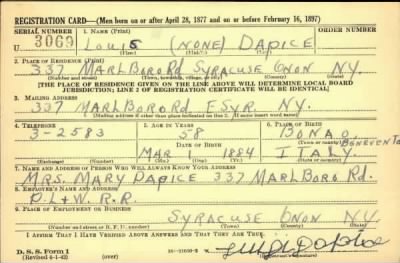 REGISTRATION CARD—(Men born on or after April 28, 1877 and on or before February 16, 1897)
SERIAL NUMBER 1. NAME (Print) ORDER NUMBER
U 3069 LOUIS (NONE) DAPICE
(First) (Middle) (Last)
2. PLACE OF RESIDENCE (Print)
337 MARLBORO RD SYRACUSE ONON N.Y.
(Number and street) (Town, township, village, or city) (County) (State)
[THE PLACE OF RESIDENCE GIVEN ON THE LINE ABOVE WILL DETERMINE LOCAL BOARD
JURISDICTION; LINE 2 OF REGISTRATION CERTIFICATE WILL BE IDENTICAL]
3. MAILING ADDRESS
337 MARLBORO RD E SYR. N.Y.
[Mailing address if other than place indicated on line 2. If same insert word same]
4. TELEPHONE 5. AGE IN YEARS 6. PLACE OF BIRTH
3-2583 58 BONAO,
BENEVENTO
DATE OF BIRTH (Town or county)
MAR 1884 ITALY
(Exchange) (Number) (Mo.) (Day) (Yr.) (State or country)
7. NAME AND ADDRESS OF PERSON WHO WILL ALWAYS KNOW YOUR ADDRESS
MRS. MARY DAPICE 337 MARLBORO RD.
8. EMPLOYER'S NAME AND ADDRESS
D.L + W. R.R.
9. PLACE OF EMPLOYMENT OR BUSINESS
SYRACUSE ONON N.Y.
(Number and street or R. F. D. number) (Town) (County) (State)
I AFFIRM THAT I HAVE VERIFIED ABOVE ANSWERS AND THAT THEY ARE TRUE.
D. S. S. Form 1
(Revised 4-1-42) (over)